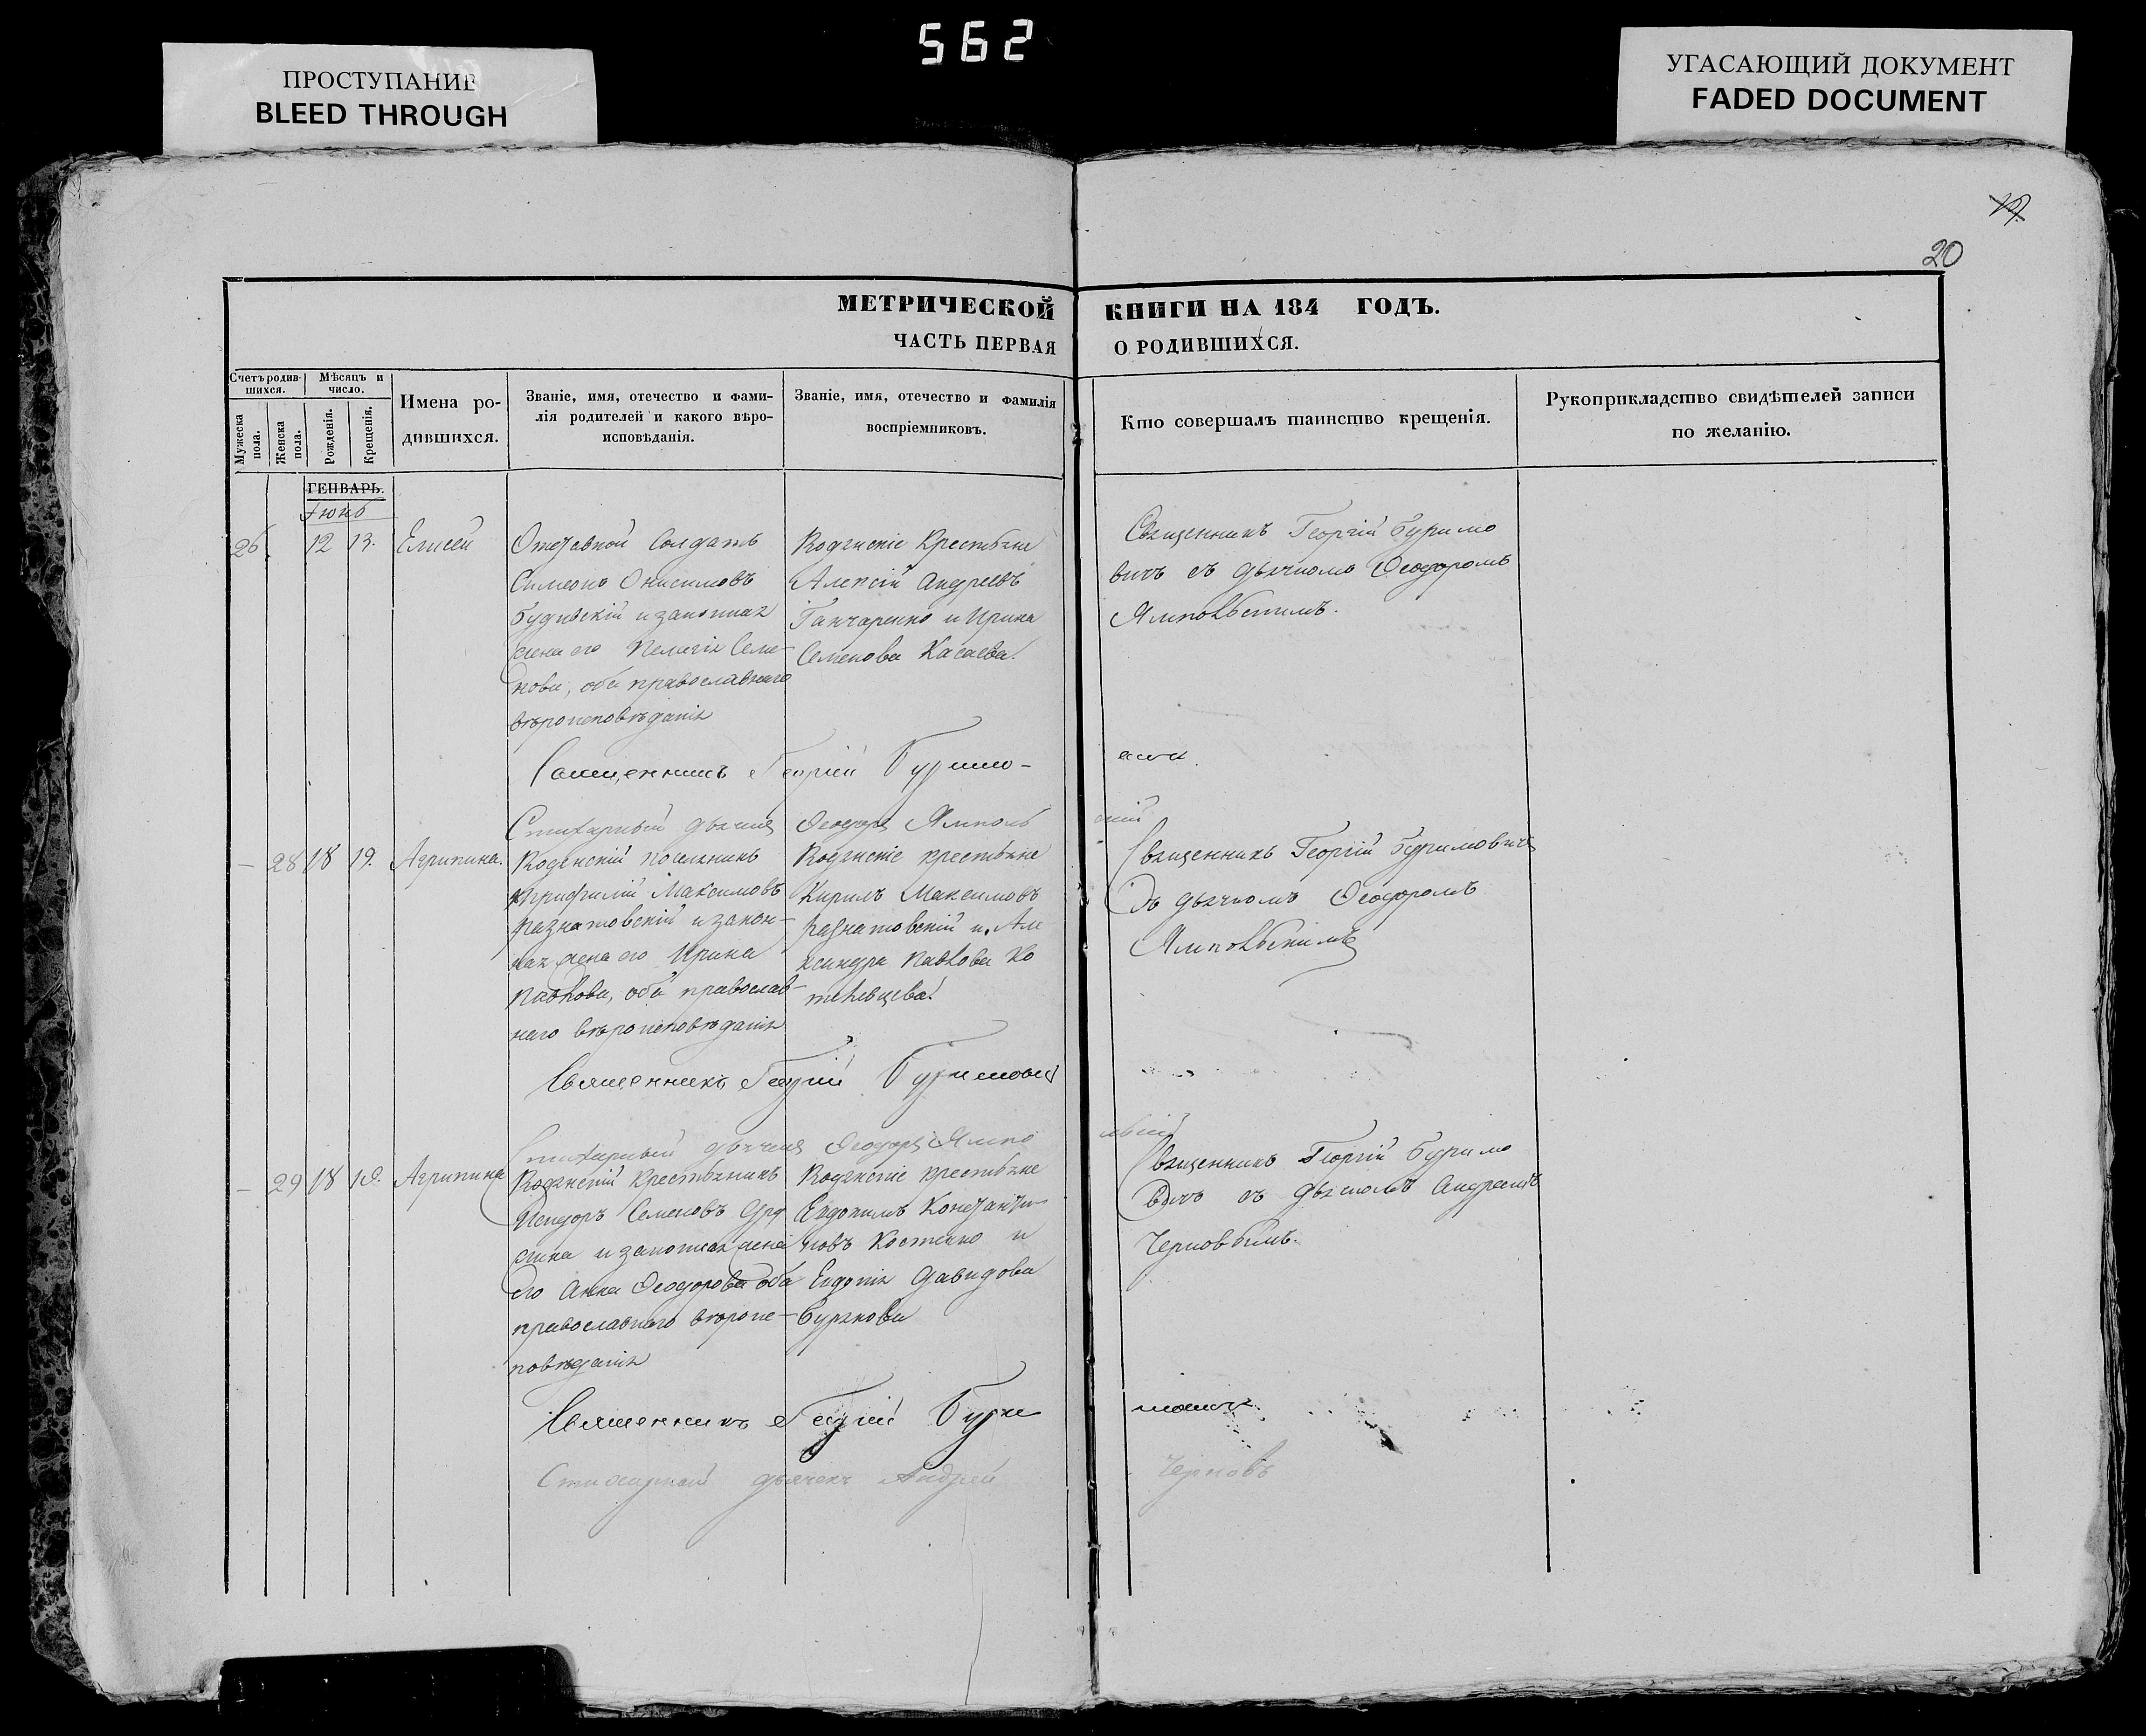 562
ПРОСТУПАНИЕ
BLEED THROUGH
УГАСАЮЩИЙ ДОКУМЕНТ
FADED DOCUMENT
20
МЕТРИЧЕСКОЙ КНИГИ НА 184 ГОДЪ.
ЧАСТЬ ПЕРВАЯ О РОДИВШИХСЯ.
Счетъ родившихся.
Мужеска пола.
Женска пола.
Мѣсяцъ и число.
Рожденія.
Крещенія.
Имена родившихся.
Званіе, имя, отечество и фамилія родителей и какого вѣроисповѣданія.
Званіе, имя, отечество и фамилія воспріемниковъ.
Кто совершалъ таинство крещенія.
Рукоприкладство свидѣтелей записи по желанію.
ГЕНВАРЬ.
Іюнь
26. 12 13. Елисей
Отставной Солдатъ
Симеонъ Онисимовъ
и законная
жена его Пелагія Семе-
нова, оба православнаго
вѣроисповѣданія
Водянскіе Крестьяне
Алексій Андреевъ
Ганчаренко и Ирина
Семенова
Священникъ Георгій Буримо
вичъ съ дьячкомъ Ѳеодоромъ
Ямпольскимъ.
Священникъ Георгій Буримо-
вичъ.
Стихарный дьячекъ Ѳеодоръ Ямполь
скій
— 28 18 19. Агрипина.
Водянскій поселянинъ
Максимовъ
Разнатовскій и закон-
ная жена его Ирина
Павлова, оба православ-
наго вѣроисповѣданія
Водянскіе крестьяне
Кирилъ Максимовъ
Разнатовскій и Але
ксандра Павлова
Священникъ Георгій Буримовичъ
съ дьячкомъ Ѳеодоромъ
Ямпольскимъ
Священникъ Георгій Буримовичъ
Стихарный дьячекъ Ѳеодоръ Ямпо
льскій
— 29 18 19. Агрипина
Водянскій Крестьянинъ
Семеновъ
и законная жена
его Анна Ѳеодорова оба
православнаго вѣроис-
повѣданія
Водянскіе крестьяне
Евдокимъ Константи
новъ Костенко и
Евдокія Давидова
Священникъ Георгій Буримо
вичъ съ дьячкомъ Андреемъ
Черновымъ.
Священникъ Георгій Бури
мовичъ.
Стихарный дьячекъ Андрей
Черновъ